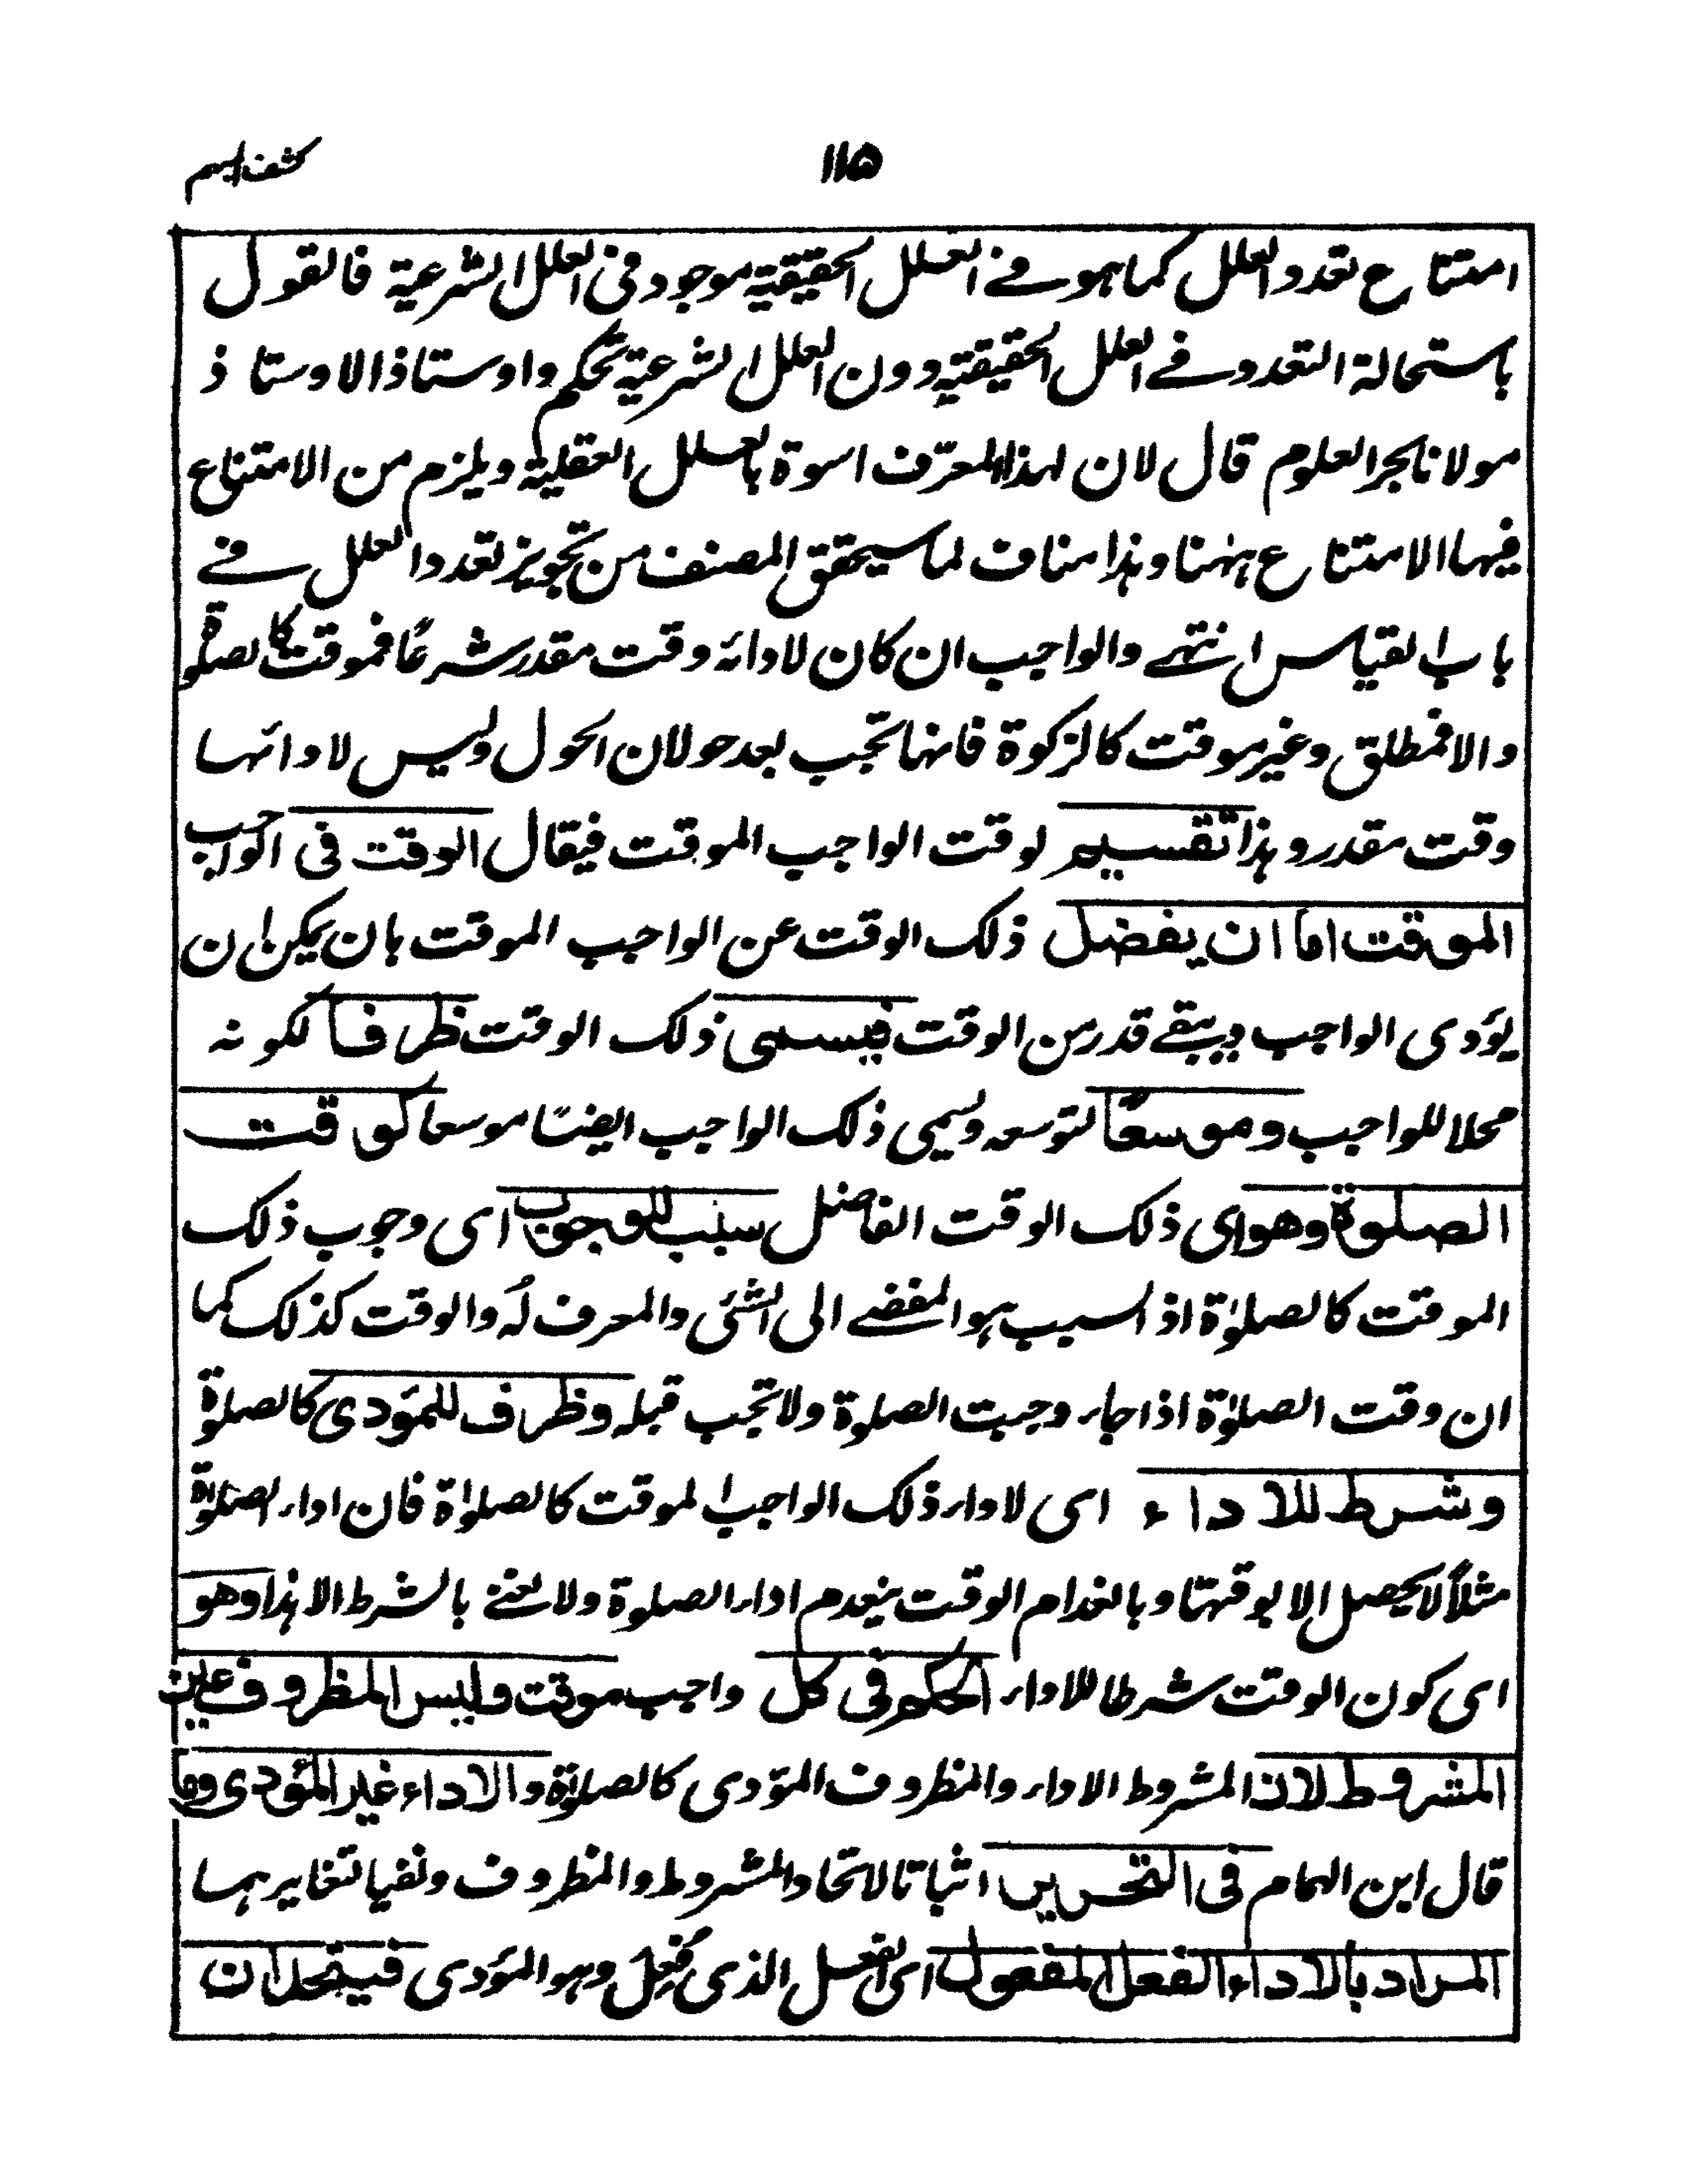 ١١٥
كشف المبهم
امتناع تعدد العلل كما هو في العلل الحقيقية موجود في العلل الشرعية فالقول
باستحالة التعدد في العلل الحقيقية دون العلل الشرعية تحكم واوستاذ الاوستاذ
مولانا بحر العلوم قال لان لهذا المعرّف اسوة بالعلل العقلية ويلزم من الامتناع
فيها الامتناع ههنا وهذا مناف لما سيحقق المصنف من تجويز تعدد العلل في
باب القياس انتهى والواجب ان كان لادائه وقت مقدر شرعًا فموقت كالصلوة
والا فمطلق وغير موقت كالزكوة فانها تجب بعد حولان الحول وليس لادائها
وقت مقدر وهذا تقسيم لوقت الواجب الموقت فيقال الوقت في الواجب
الموقت اما ان يفضل ذلك الوقت عن الواجب الموقت بان يمكن ان
يؤدى الواجب ويبقى قدر من الوقت فيسمى ذلك الوقت ظرفا لكونه
محلا للواجب وموسعًا لتوسعه ويسمى ذلك الواجب ايضًا موسعا كوقت
الصلوة وهو اى ذلك الوقت الفاضل سبب للوجوب اى وجوب ذلك
الموقت كالصلوٰة اذ السبب هو المفضى الى الشئ والمعرف لهُ والوقت كذلك كما
ان وقت الصلوٰة اذا جاء وجبت الصلوة ولا تجب قبله وظرف للمؤدى كالصلوة
وشرط للاداء اى لاداء ذلك الواجب الموقت كالصلوٰة فان اداء الصلوٰة
مثلاً لا يحصل الا بوقتها وبانعدام الوقت ينعدم اداء الصلوة ولا نعنى بالشرط الا هذا وهو
اى كون الوقت شرطا للاداء الحكم في كل واجب موقت وليس المظروف عين
المشروط لان المشروط الاداء والمظروف المؤدى كالصلوٰة والاداء غير المؤدى وما
قال ابن الهمام فى التحرير اثباتا لاتحاد المشروط والمظروف ونفيا لتغايرهما
المراد بالاداء الفعل المفعول اى الفعل الذى فُعِلَ وهو المؤدى فيتحدان